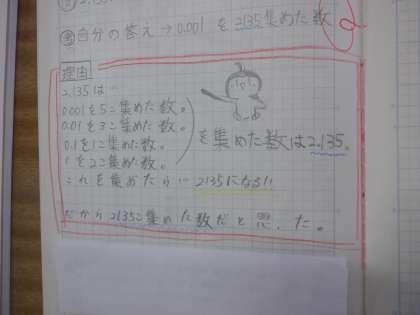 自分の答え→0.001を2135集めた数
理由
2.135は…
0.001を5こ集めた数。
0.01を3こ集めた数。
0.1を1こ集めた数。
1を2こ集めた数。
を集めた数は2.135。
これを集めたら…2135になる!!
だから2135こ集めた数だと思った。